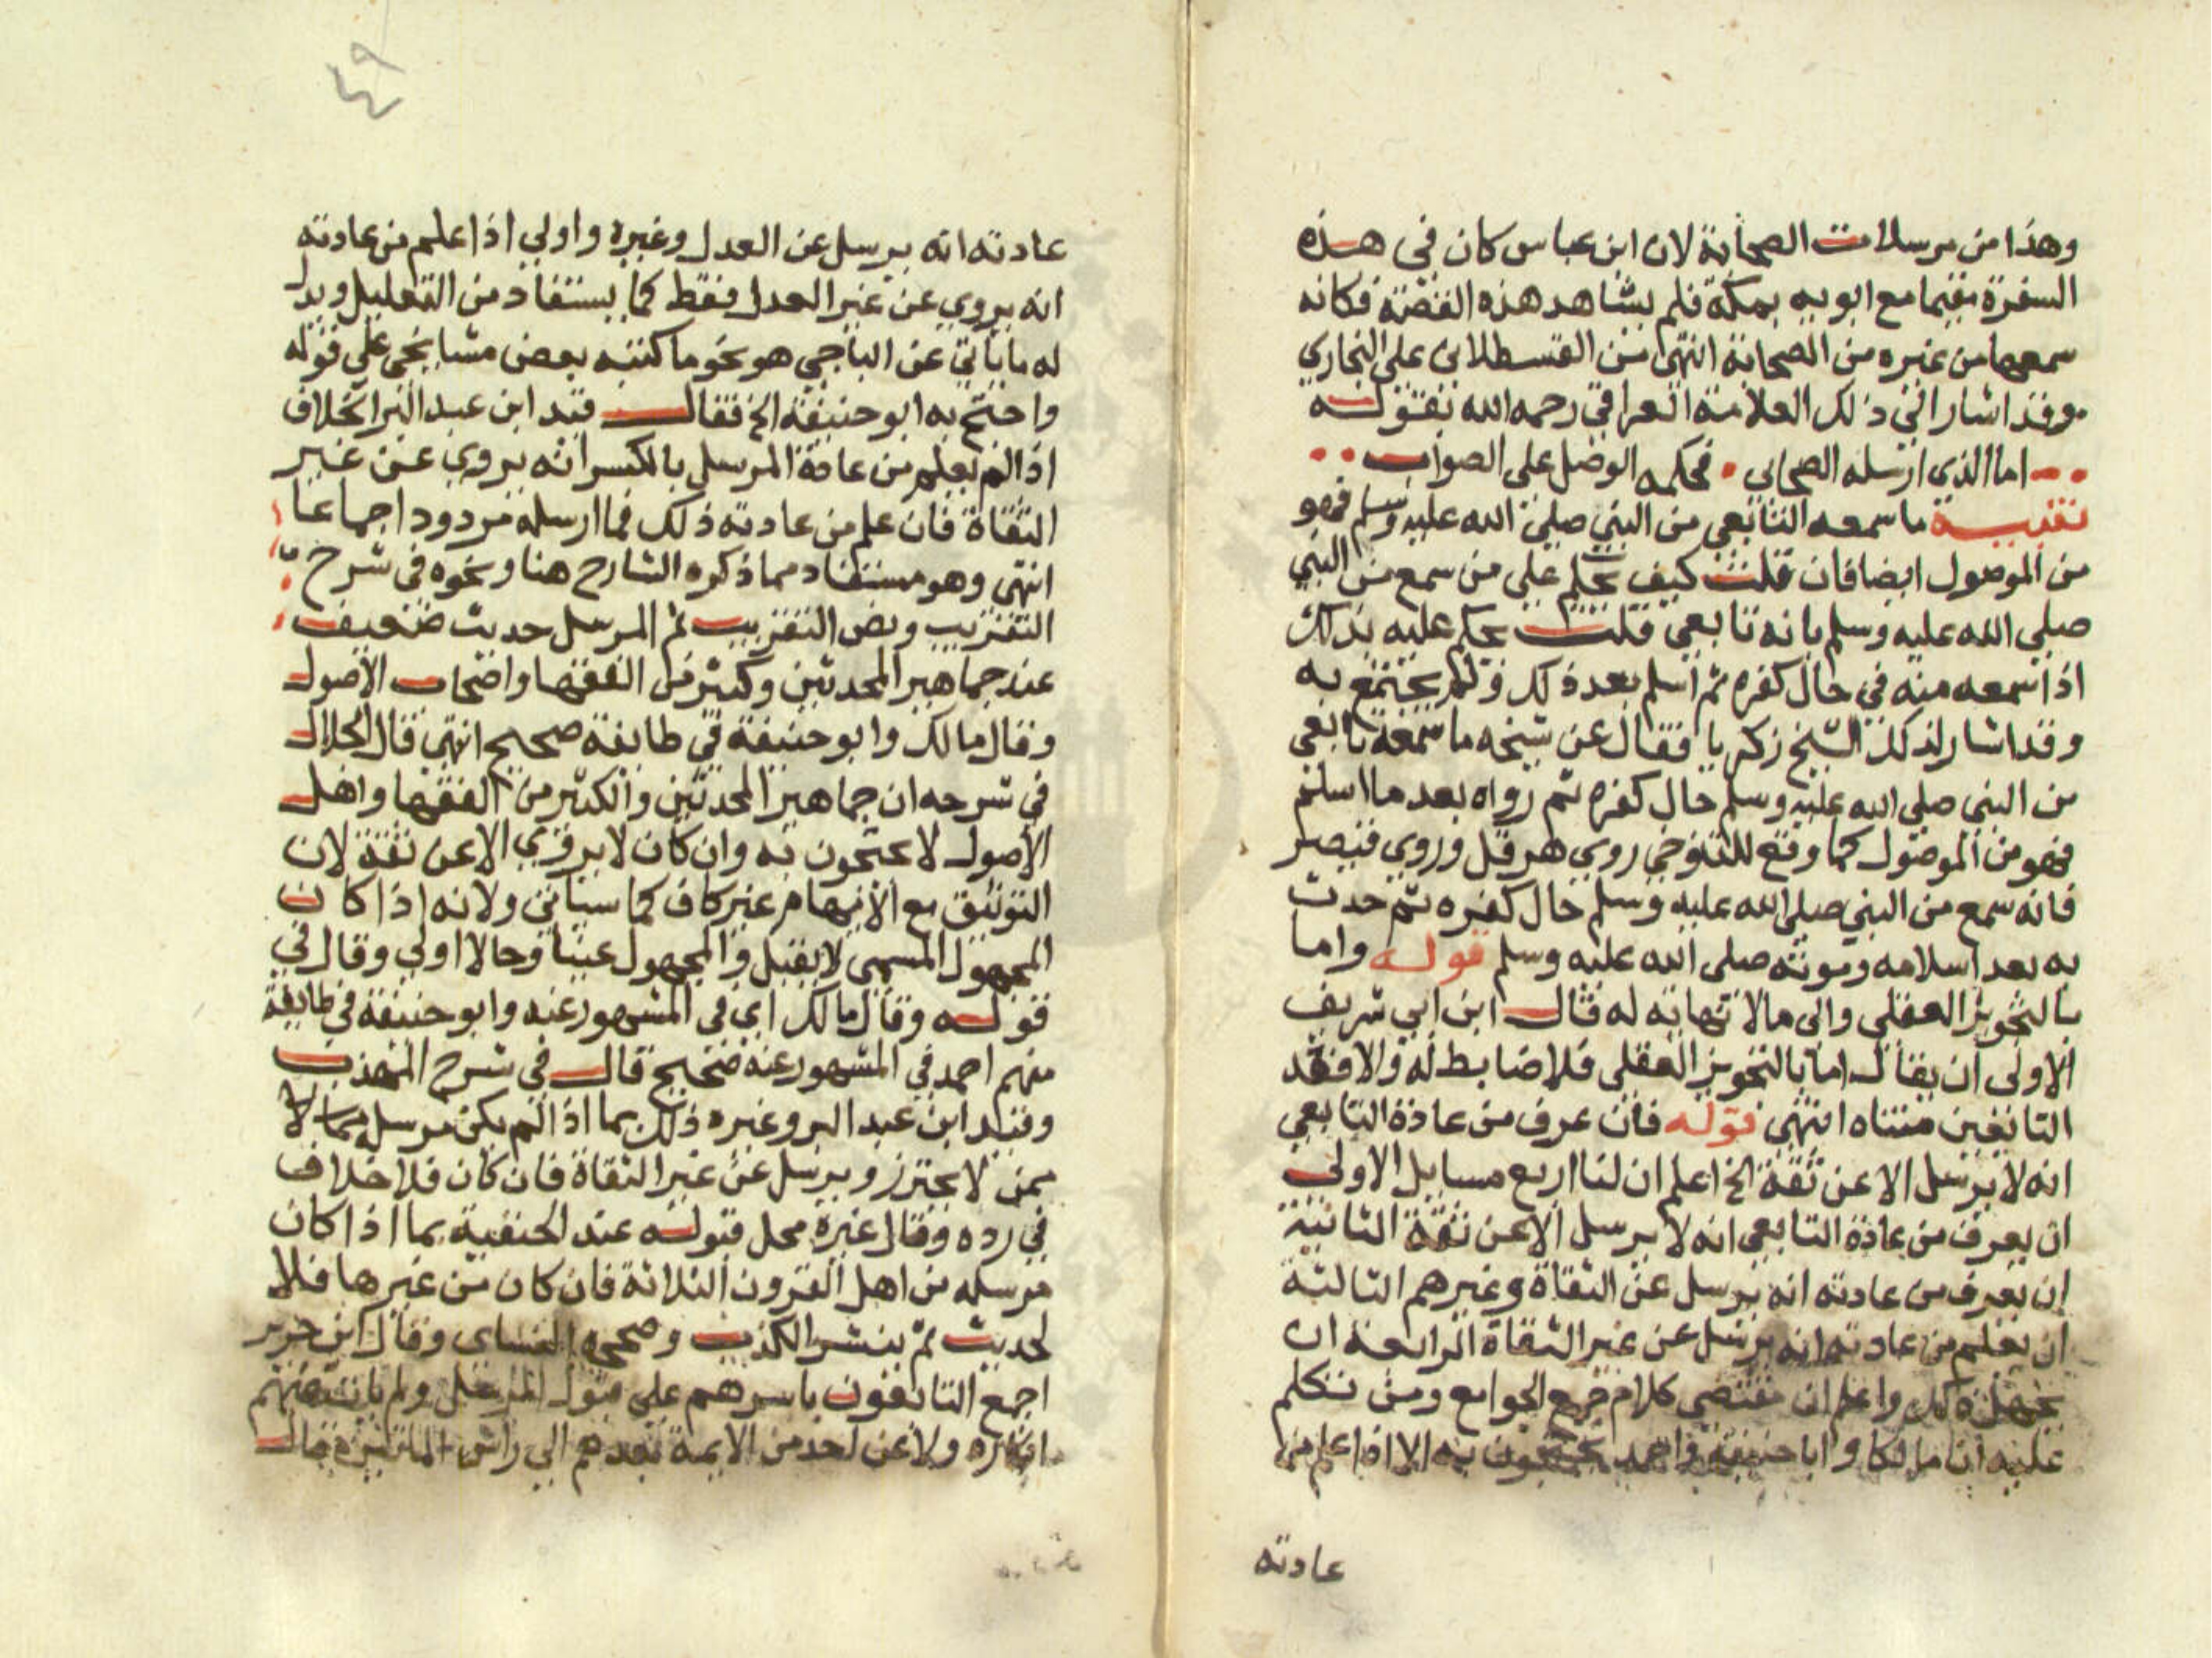 وهذا من مرسلات الصحابة لان ابن عباس كان في هذه
السفرة مقيما مع ابويه بمكة فلم يشاهد هذه القصة فكانه
سمعها من غيره من الصحابة انتهى من القسطلاني على البخاري
وقد اشار الي ذلك العلامة العراقي رحمه الله بقوله
اما الذي ارسله الصحابي . فحكمه الوصل على الصواب
تنبيه ما سمعه التابعي من النبي صلي الله عليه وسلم فهو
من الموصول ايضا فان قلت كيف يحكم علي من سمع من النبي
صلي الله عليه وسلم بانه تابعي قلت يحكم عليه بذلك
اذا سمعه منه في حال كفره ثم اسلم بعد ذلك ولم يجتمع به
وقد اشار لذلك الشيخ زكريا فقال عن شيخه ما سمعه تابعي
من النبي صلي الله عليه وسلم حال كفره ثم رواه بعد ما اسلم
فهو من الموصول كما وقع للتنوخي روي هرقل وروي قيصر
فانه سمع من النبي صلي الله عليه وسلم حال كفره ثم حدث
به بعد اسلامه وموته صلي الله عليه وسلم قوله واما
بالتجويز العقلي والى مالا نهاية له قال ابن ابي شريف
الاولى ان يقال اما بالتجويز العقلي فلا ضابط له والا فقد
التابعين متناه انتهى قوله فان عرف من عادة التابعي
انه لا يرسل الا عن ثقة الخ اعلم ان لنا اربع مسايل الاولى
ان يعرف من عادة التابعي انه لا يرسل الا عن ثقة الثانية
ان يعرف من عادته انه يرسل عن الثقاة وغيرهم الثالثة
ان يعلم من عادته انه يرسل عن غير الثقاة الرابعة ان
يجهل ذلك واعلم ان مقتضى كلام جمع الجوامع ومن تكلم
عليه ان مالكا وابا حنيفة واحمد يحتجون به الا اذا علم من
عادته
٤٩
عادته انه يرسل عن العدل وغيره واولي اذا علم من عادته
انه يروي عن غير العدل فقط كما يستفاد من التعليل ويدل
له ما ياتي عن الباجي هو نحو ما كتبه بعض مشايخي على قوله
واحتج به ابو حنيفة الخ فقال قيد ابن عبد البر الخلاف
اذا لم يعلم من عادة المرسل بالكسر انه يروي عن غير
الثقاة فان علم من عادته ذلك فما ارسله مردود اجماعا
انتهى وهو مستفاد مما ذكره الشارح هنا ونحوه في شرح
التقريب ونص التقريب ثم المرسل حديث ضعيف
عند جماهير المحدثين وكثير من الفقها واصحاب الاصول
وقال مالك وابو حنيفة في طايفة صحيح انتهى قال الجلال
في شرحه ان جماهير المحدثين والكثير من الفقها واهل
الاصول لا يحتجون به وان كان لا يروي الا عن ثقة لان
التوثيق مع الابهام غير كاف كما سياتي ولانه اذا كان
المجهول المسمى لا يقبل والمجهول عينا وحالا اولي وقال في
قوله وقال مالك اي في المشهور عنه وابو حنيفة في طايفة
منهم احمد في المشهور عنه صحيح قال في شرح المهذب
وقيد ابن عبد البر وغيره ذلك بما اذا لم يكن مرسله مما لا
ممن لا يحترز ويرسل عن غير الثقاة فان كان فلا خلاف
في رده وقال غيره محل قبوله عند الحنفية بما اذا كان
مرسله من اهل القرون الثلاثة فان كان من غيرها فلا
لحديث ثم ينشر الكذب وصححه النساى وقال ابن جرير
اجمع التابعون باسرهم على قبول المرسل ولم يات عنهم
انكاره ولا عن احد من الايمة بعدهم الى راس المائتين قال